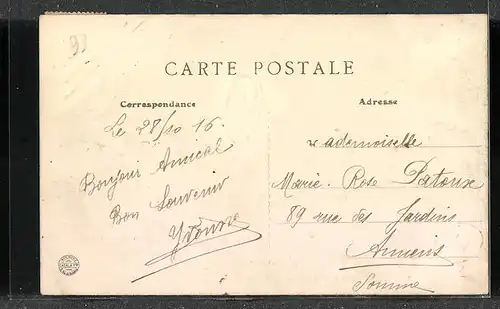 93
CARTE POSTALE
Correspondance
Le 28/10 16.
Bonjour Amical
Bon Souvenir
Yvonne
Adresse
Mademoiselle
Marie-Rose Patoux
89 rue des Jardins
Amiens
Somme